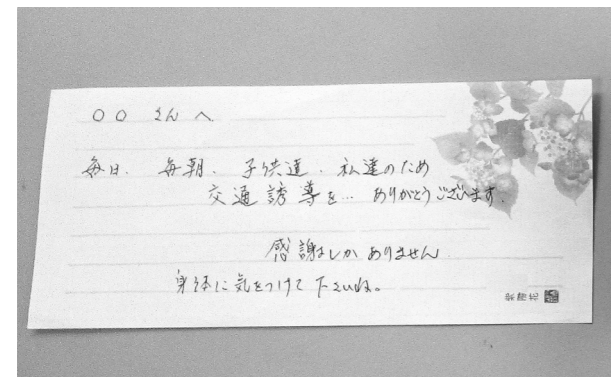 〇〇 さんへ
毎日、毎朝、子供達、私達のため
交通誘導を… ありがとうございます。
感謝しかありません
身体に気をつけて下さいね。